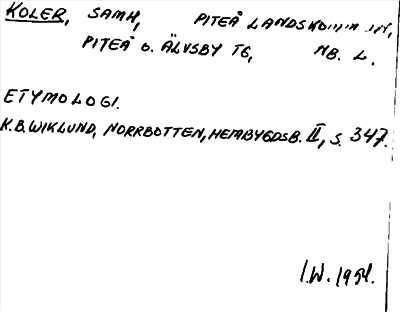 KOLER, SAMH, PITEÅ LANDSKOMMUN,
PITEÅ O. ÄLVSBY TG, NB. L.
ETYMOLOGI.
K.B. WIKLUND, NORRBOTTEN, HEMBYGDSB. II, S. 347.
I.W. 1954.